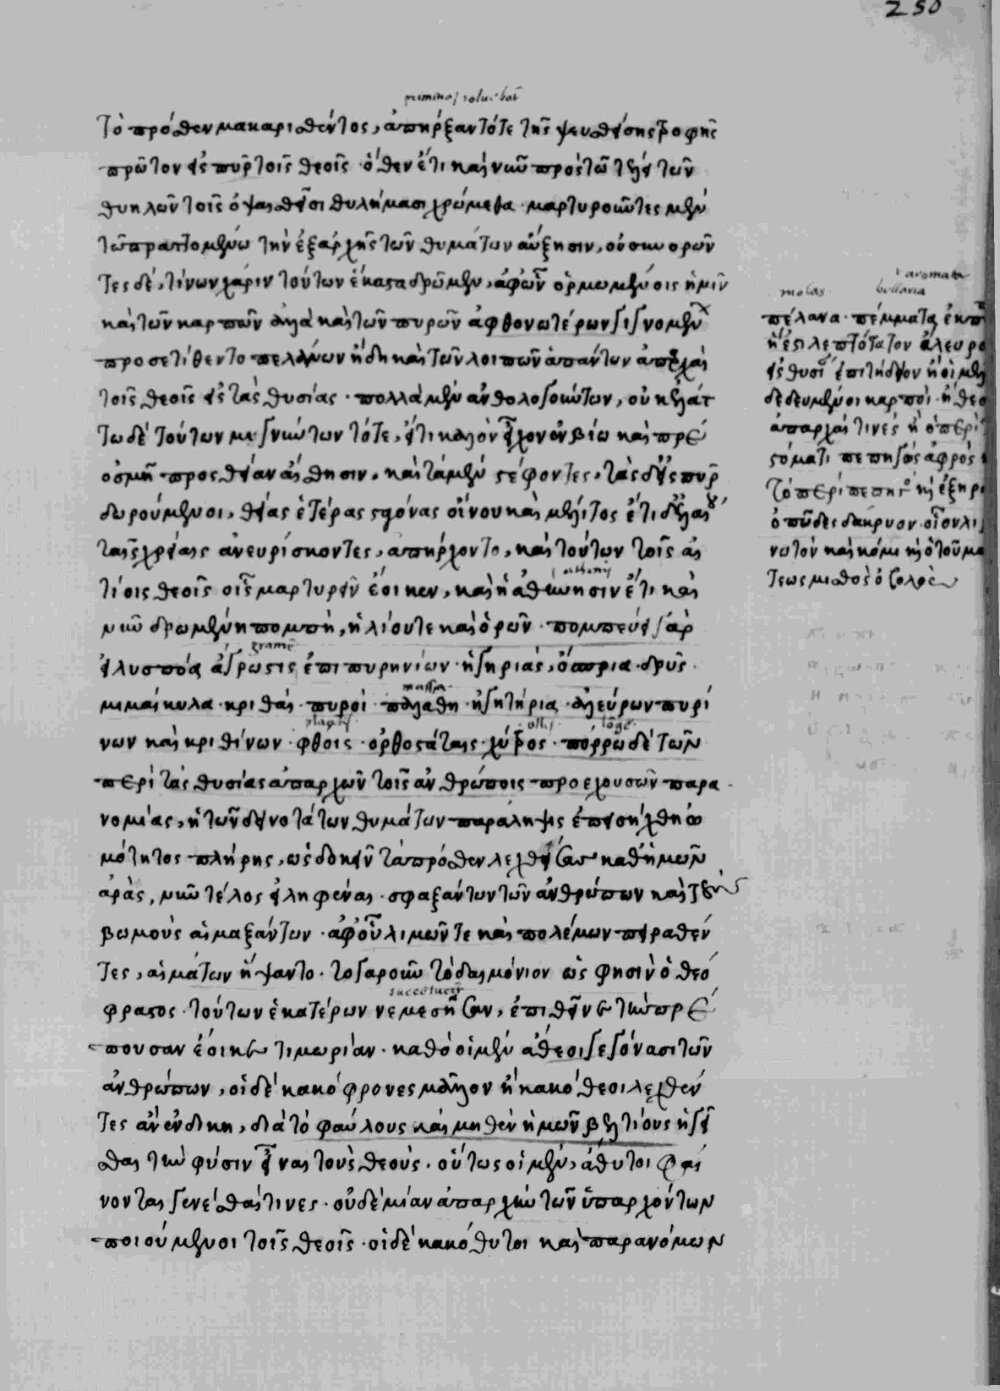 250
τὸ πρόσθεν μακαρισθέντος, ἀπήρξαντό τε τῆς ψαυσθείσης τροφῆς
πρῶτον εἰς πῦρ τοῖς θεοῖς · ὅθεν ἔτι καὶ νῦν πρὸς τῶ τέλει τῶν
θυηλῶν τοῖς ψαισθεῖσι θυλήμασι χρώμεθα · μαρτυροῦντες μὲν
τῶ πραττομένω τὴν ἐξαρχῆς τῶν θυμάτων αὔξησιν, οὐ συνορῶν
τες δὲ, τίνων χάριν τούτων ἕκαστα δρῶμεν, ἀφῶν ὁρμωμένοις ἡμῖν
καὶ τῶν καρπῶν ἀλλὰ καὶ τῶν πυρῶν ἀφθονωτέρων γιγνομένων
προσετίθεντο πελάνων ἤδη καὶ τῶν λοιπῶν ἁπάντων ἀπαρχαὶ
τοῖς θεοῖς εἰς τὰς θυσίας · πολλὰ μὲν ἀνθολογούντων, οὐκ ἐλάτ
τω δὲ τούτων μιγνύντων τότε, εἴ τι καλὸν εἶχον ἐν βίω καὶ πρέπον
ὀσμῆ πρὸς θείαν αἴσθησιν, καὶ τὰ μὲν στέφοντες, τὰς δ' εἰς πῦρ
δωρούμενοι, θείας ἑτέρας σταγόνας οἴνου καὶ μέλιτος ἔτι δ' ἐλαίου
ταῖς χρείαις ἀνευρίσκοντες, ἀπήρχοντο, καὶ τούτων τοῖς αἰ
τίοις θεοῖς οἷς μαρτυρεῖν ἔοικεν, καὶ ἡ ἀθήνησιν ἔτι καὶ
νῦν δρωμένη πομπὴ, ἡλίου τε καὶ ὁρῶν · πομπεύει γὰρ
εἰλυσπόα ἄγρωστις ἐπὶ πυρηνίων · ἡγηρίας, ὄσπρια · δρῦς ·
μιμαίκυλα · κριθαὶ · πυροὶ · παλάθη · ἡγητήρια · ἀλεύρων πυρί
νων καὶ κριθίνων · φθοῖς · ὀρθοστάτης · χύτρος · πόρρω δὲ τῶν
περὶ τὰς θυσίας ἀπαρχῶν τοῖς ἀνθρώποις προεχουσῶν παρα
νομίας, ἡ τῶν δεινοτάτων θυμάτων παράληψις ἐπεισήχθη ὠ
μότητος πλήρης, ὡς δοκεῖν τὰ πρόσθεν λεχθείσας καθ' ἡμῶν
ἀρὰς, νῦν τέλος εἰληφέναι · σφαξάντων τῶν ἀνθρώπων καὶ τοὺς
βωμοὺς αἱμαξάντων · ἀφοῦ λιμῶν τε καὶ πολέμων πειραθέν
τες, αἱμάτων ἥψαντο · τοιγαροῦν τὸ δαιμόνιον ὡς φησὶν ὁ θεό
φραστος · τούτων ἑκατέρων νεμεσῆσαν, ἐπιθεῖναι τὴν πρέ
πουσαν ἔοικε τιμωρίαν · καθὸ οἱ μὲν ἄθεοι γεγόνασι τῶν
ἀνθρώπων, οἱ δὲ κακόφρονες μᾶλλον ἢ κακόθεοι λεχθέν
τες ἂν ἐνδίκη, διὰ τὸ φαύλους καὶ μηθὲν ἡμῶν βελτίους ἡγεῖ
σθαι τὴν φύσιν εἶναι τοὺς θεούς · οὕτως οἱ μὲν, ἄθυτοι φαί
νονται γενέσθαι τινες · οὐδεμίαν ἀπαρχὴν τῶν ὑπαρχόντων
ποιούμενοι τοῖς θεοῖς · οἱ δὲ κακόθυτοι καὶ παρανόμων
aromata
molas bellaria
πέλανα · πέμματα ἐκ
ἤγουν λεπτότατον ἄλευρο
εἰς θυσίαν ἐπιτήδειον ἢ οἱ με
δεδευμένοι καρποὶ · ἢ θεο
ἀπαρχαὶ τινὲς ἢ ὁ περὶ τ
στόματι πεπηγὼς ἀφρὸς
τὸ περιπεπηγὸς καὶ ἐξηρ
ὀπῶδες δάκρυον · οἷον λι
νωτὸν καὶ κόμι καὶ ὁ τοῦ μα
τεως μισθὸς ὁ ὀβολὸς